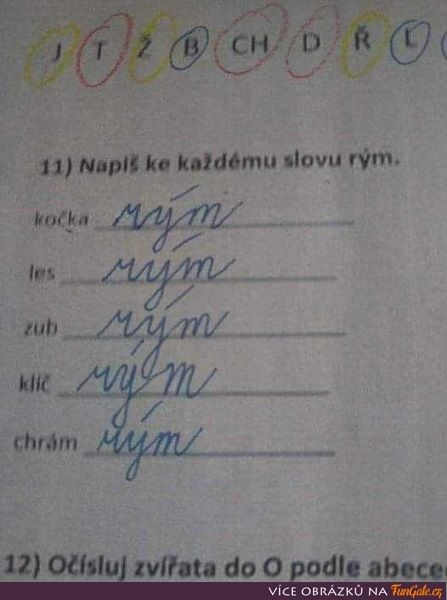 J T Ž B CH D Ř L
11) Napiš ke každému slovu rým.
kočka rým
les rým
zub rým
klíč rým
chrám rým
12) Očísluj zvířata do O podle abece
VÍCE OBRÁZKŮ NA FunGate.cz